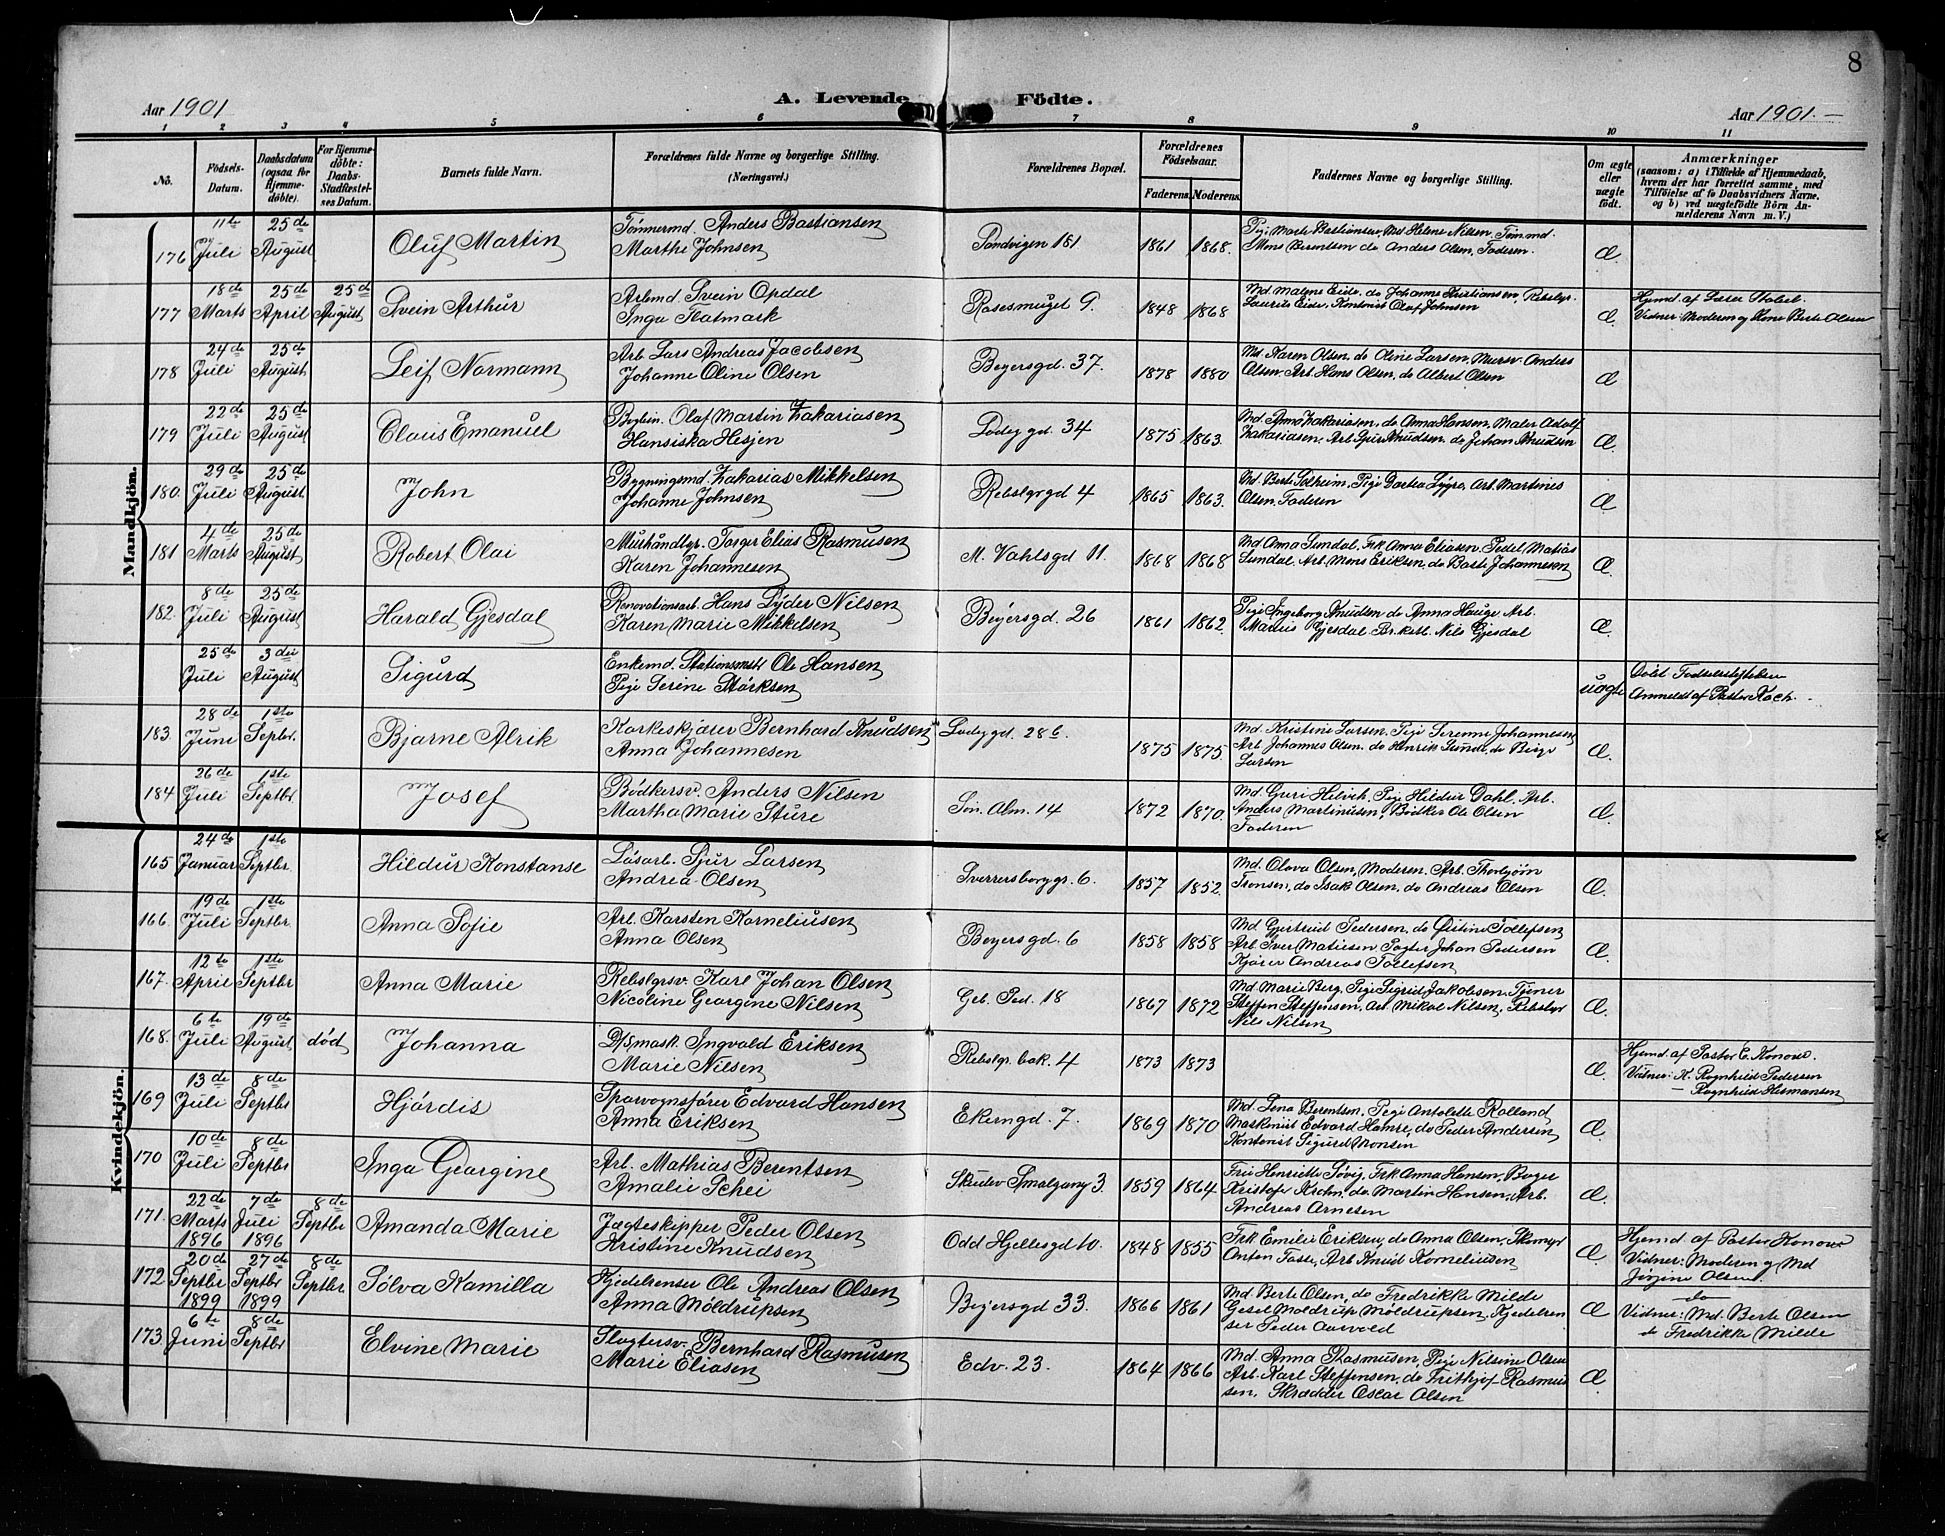 8
Aar 1901
A. Levende Födte.
Aar 1901.—
1 2 3 4 5 6 7 8 9 10 11
Nö.
Födsels-Datum.
Daabsdatum (ogsaa for Hjemme-döbte).
For Hjemme-döbte: Daabs-Stadfæstel-ses Datum.
Barnets fulde Navn.
Forældrenes fulde Navne og borgerlige Stilling.
(Næringsvei.)
Forældrenes Bopæl.
Forældrenes Födselsaar.
Faderens. Moderens.
Faddernes Navne og borgerlige Stilling.
Om ægte eller uægte födt.
Anmærkninger
(saasom: a) i Tilfælde af Hjemmedaab, hvem der har forrettet samme, med Tilföielse af to Daabsvidners Navne. og b) ved uægtefödte Börn An-melderens Navn m. V.)
Mandkjön.
176 11te Juli 25de August Oluf Martin Tönnermd. Anders Bastiansen
Marthe Johnsen Sandvigen 181 1861 1868. Pige Marte Bastiansen, Md Helene Nilsen, Tönmd.
Mons Berentsen do Anders Olsen, Faderen. Æ.
177 18de Marts 25de April 25de August Svein Arthur Arbmd. Svein Opdal
Inga Slatmark Rosesmuget 9. 1848 1868 Md Malene Eide, do Johanne Kristiansen, Rebslgr.
Laurits Eide, Kontorist Olaf Johnsen Æ. Hjmd. af
Vidner: Moderen og Kone Berte Olsen
178 24de Juli 25de August Leif Normann Arb Lars Andreas Jacobsen
Johanne Oline Olsen Beyersgd. 37. 1878 1880 Md. Karen Olsen, do Oline Larsen, Mursv. Anders
Olsen, Arb. Hans Olsen, do Albert Olsen Æ
179 22de Juli 25de August Claus Emanuel Olaf Martin Zakariasen
Hansiska Hesjen Ladeggd. 34 1875 1863. Md. Anna Zakariasen, do Anna Hansen, Maler Adolf
Zakariasen, Arb Gjur Knudsen, do Johan Knudsen Æ
180. 29de Juli 25de August John Bygningsmd. Zakarias Mikkelsen
Johanne Johnsen Rebslgrgd 4 1865 1863. Md. Berte Solheim, Pige Dortea Lygre, Arb. Martinus
Olsen, Faderen Æ
181 4de Marts 25de August Robert Olai Murhåndlgr. Torger Elias Rasmusen
Karen Johannesen M. Vahlsgd 11. 1868 1868 Md Anna Sundal, Frk Anna Eliasen, Pedel Matias
Sundal, Arb. Mons Eriksen, do Baste Johannesen Æ.
182. 8de Juli 25de August Harald Gjesdal Renovationsarb. Hans Lyder Nilsen
Karen Marie Mikkelsen Beyersgd. 26 1861 1862. Pige Ingeborg Knudsen do Anna Hauge Arb.
Marius Gjesdal Nils Gjesdal Æ.
25de Juli 3die August Sigurd Enkemd. Stationsmstr Ole Hansen
Pige Serine Störksen uægte Födselsstiftelsen
Anmeldt af Pastor Koch.
183. 28de Juni 1ste Septbr. Bjarne Alrik Korkeskjærer Bernhard Knudsen
Anna Johannesen Ladeggd 28b. 1875 1875. Md. Kristine Larsen, Pige Serenne Johannesen,
Arb Johannes Olsen, do Henrik Sunde, do Birge
Larsen Æ.
184 26de Juli 1ste Septbr Josef Bödkersv. Anders Nilsen
Martha Marie Sture Sm. Alm. 14 1872 1870. Md. Guri Hilvik, Pige Hildur Dahl, Arb.
Anders Martinusen, Bödker Ole Olsen
Faderen Æ.
Kvindekjön.
165 24de Januar 1ste Septbr. Hildur Konstanse Lösarb. Sjur Larsen
Andrea Olsen Sverresborggr. 6. 1857 1852. Md. Olava Olsen, Moderen, Arb. Thorbjörn
Tronsen, do Isak Olsen, do Andreas Olsen Æ.
166. 19de Juli 1ste Septbr. Anna Sofie Arb. Karsten Korneliusen
Anna Olsen Beyersgd. 6 1858 1858 Md. Gjertrud Pedersen, do Östine Tollefsen
Arb. Iver Matiesen, Johan Pedersen
Kjörer Andreas Tollefsen Æ.
167. 12te April 1ste Septbr Anna Marie Rebslgrsv. Karl Johan Olsen
Nicoline Georgine Nilsen Geb. Ped. 18 1867 1872 Md. Marie Berg, Pige Sigrid Jakobsen, Töner
Steffen Steffensen, Arb Mikal Nilsen, Rebslgr
Nils Nilsen Æ.
168. 6te Juli 19de August död Johanna D/Smask. Ingvald Eriksen
Marie Nilsen Rebslgr. bak. 4 1873 1873 Æ. Hjemd. af Pastor E. Konow.
Vidner: K. Ragnhild Pedersen
Ragnhild
169 13de Juli 8de Septbr Hjördis Sporvognsförer Edvard Hansen
Anna Eriksen Ekerngd. 7. 1869 1870 Md. Lena Berentsen, Pige Antolette Rolland
Maskinist Edvard Hamre, do Peder Andersen
Kontorist Sigurd Monsen Æ.
170 10de Juli 8de Septbr Inga Georgine Arb. Mathias Berentsen
Amalie Schei Skudev. Smalgang 3. 1859 1864 Frue Henriette Sövig, Frk Anna Hansen, Bager
Kristofer Krohn, do Martin Hansen, Arb.
Andreas Arnesen Æ.
171. 22de Marts 1896 7de Juli 1896 8de Septbr Amanda Marie Jægteskipper Peder Olsen
Kristine Knudsen Odd Hjeltesgd 10. 1848 1855 Frk Emilie Eriksen, do Anna Olsen,
Anton Foss, Arb Knud Korneliusen Æ Hjemd. af Pastor Konow
Vidner: Moderen og Md
Jörgine Olsen
172. 20de Septbr 1899 27de Septbr 1899 8de Septbr Sölva Kamilla Kjedelrenser Ole Andreas Olsen
Anna Möldrupsen Beyersgd 33. 1866 1861 Md Berte Olsen, do Fredrikke Milde
Gesel Moldrup Möldrupsen, Kjedelren
ser Peder Aarvold Æ do
Vidner: Md. Berte Olsen
do Fredrikke Milde
173. 6te Juni 8de Septbr Elvine Marie Slagtersv. Bernhard Rasmusen
Marie Eliasen Edv. 23. 1864 1866 Md. Anna Rasmusen, Pige Nilsine Olsen
Arb. Karl Steffensen, do Frithjof Rasmus
sen, Skrædder Oscar Olsen Æ.